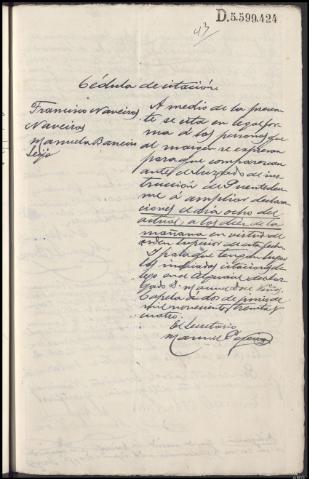 D.5.599.424
43
Cédula de citación
Francisco Naveiras
Naveiras
Manuela
Seijo
A medio de la presen
te se cita en legal for
ma a las personas que
de margen se expresan
para que comparezcan
ante el Juzgado de ins
trucción de Puentedeu
me a ampliar declara
ciones el dia ocho del
actual, a las diez de la
mañana en virtud de
orden superior de esta fecha
Y para que tenga lugar
las indicadas citaciones
en el Alguacil de este Juz
gado D. Manuel
Capela a dos de junio de
mil novecientos treinta y
cuatro.
El Secretario
Manuel